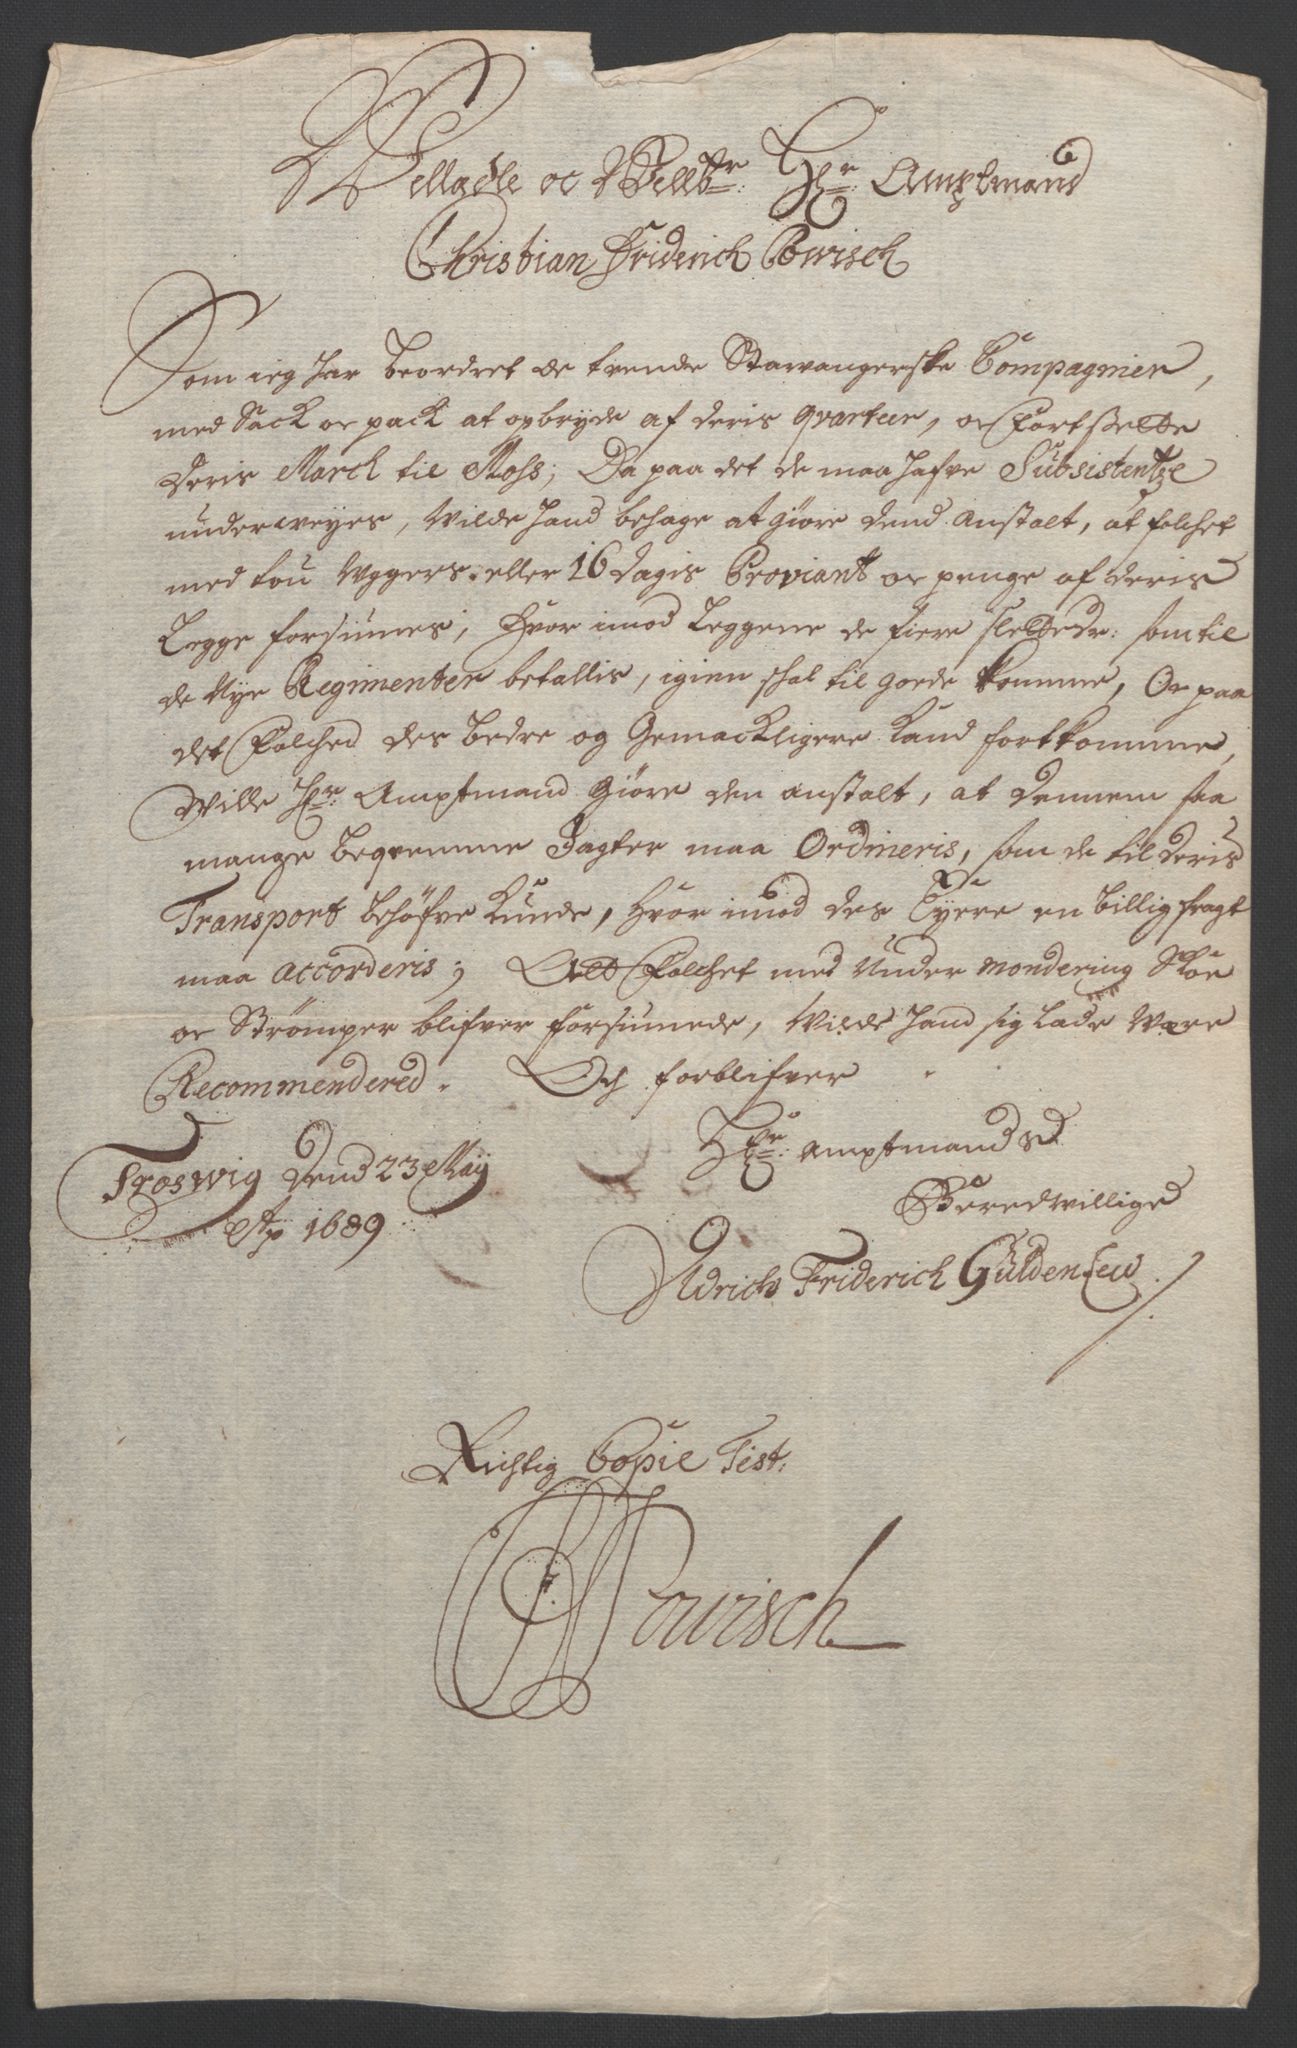 Velædle oc Velb:r H:r Amptmand
Christian Friderich Powisch
Som ieg har beordret de trende Stawangerske Compagnier,
med Sack oc pack at opbryde af deris qvarteer, oc Fortsette
deris March til Moss; Da paa det de maa hafve Subsistentze
underweyes, wilde hand behage at giøre dend anstalt, at folchet
med tou Uggers eller 16 dagis Proviant oc penge af deris
Legge forsiunes, Hvor imod Leggene de fiere slettedr: som til
de Nye Regimenter betallis, igien schal til gode komme, Oc paa
det Folched des bedre og Gemackligere kand fortkomme,
Wille H:r Amptmand giøre den anstalt, at dennem saa
mange beqvemme Jagter maa Ordineris, som de til deris
Transport behøfve kunde, Hvor imod des Eyere en billig fragt
maa accorderis; At Folchet med Under mondering Skoe
oc Strømper blifver forsiunede, Wilde hand sig lade være
Recommendered. Och forblifver
H:r Amptmands
Beredwillige
Froswig dend 23 Maij
A:o 1689
Uldrich Friderich Güldenlew
Richtig Copie Test:
CF Powisch